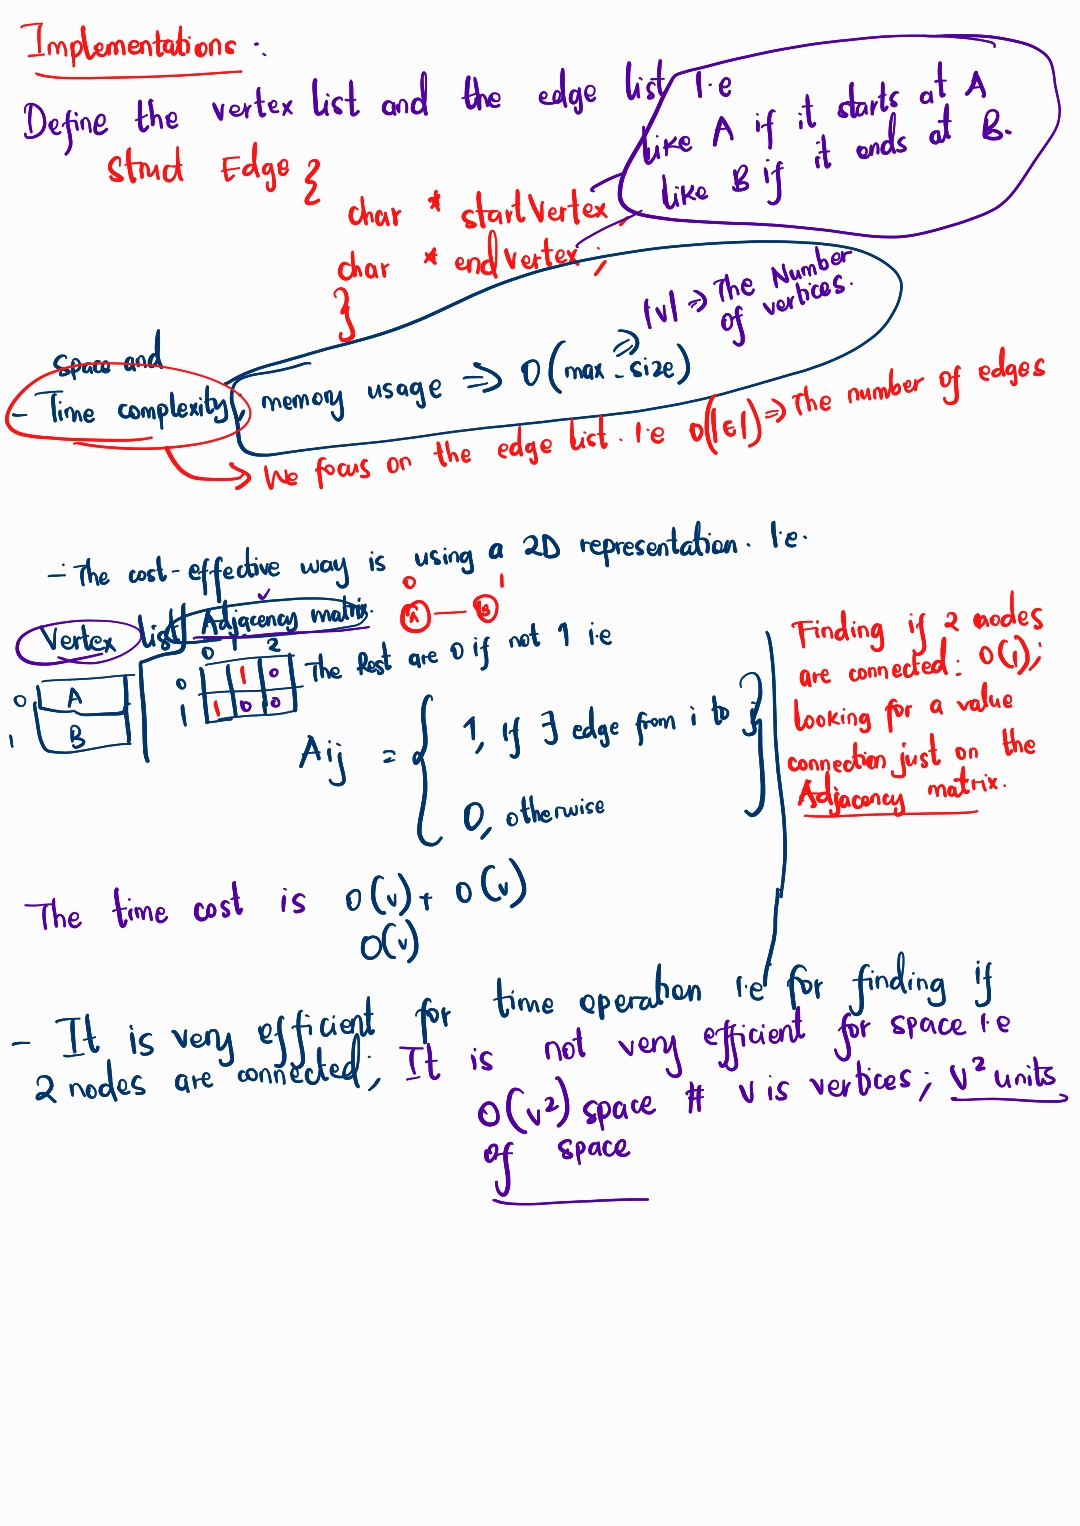 Implementations :
Define the vertex list and the edge list I.e
like A if it starts at A
like B if it ends at B.
struct Edge {
char * startVertex ;
char * endVertex ;
}
|V| => The Number
of vertices.
Space and
- Time complexity, memory usage => O(max_size)
We focus on the edge list. I.e O(|E|) => The number of edges
- The cost-effective way is using a 2D representation. I.e.
0 1
A — B
Vertex list Adjacency matrix.
0 1 2
0 1 0
1 1 0 0
The Rest are 0 if not 1 i.e
0 A
1 B
Aij = { 1, If ∃ edge from i to j }
0, otherwise
Finding if 2 nodes
are connected: O(1);
looking for a value
connection just on the
Adjacency matrix.
The time cost is O(v) + O(v)
O(v)
- It is very efficient for time operation i.e for finding if
2 nodes are connected; It is not very efficient for space i.e
O(v²) space # v is vertices; v² units
of space